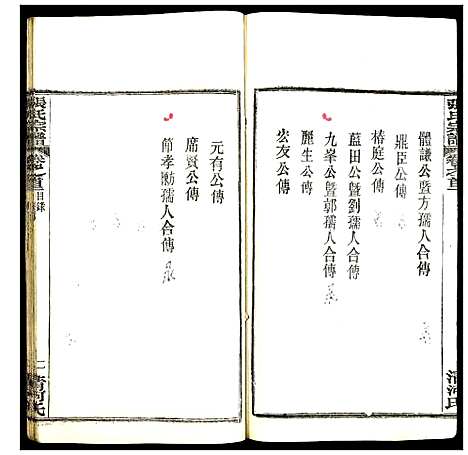 張氏宗譜
卷之首
體謙公暨方孺人合傳
鼎臣公傳
椿庭公傳
藍田公暨劉孺人合傳
九峯公暨郭孺人合傳
麗生公傳
宏友公傳
清河氏
元有公傳
席賢公傳
節孝勳孺人合傳
張氏宗譜
卷之首
目錄
清河氏